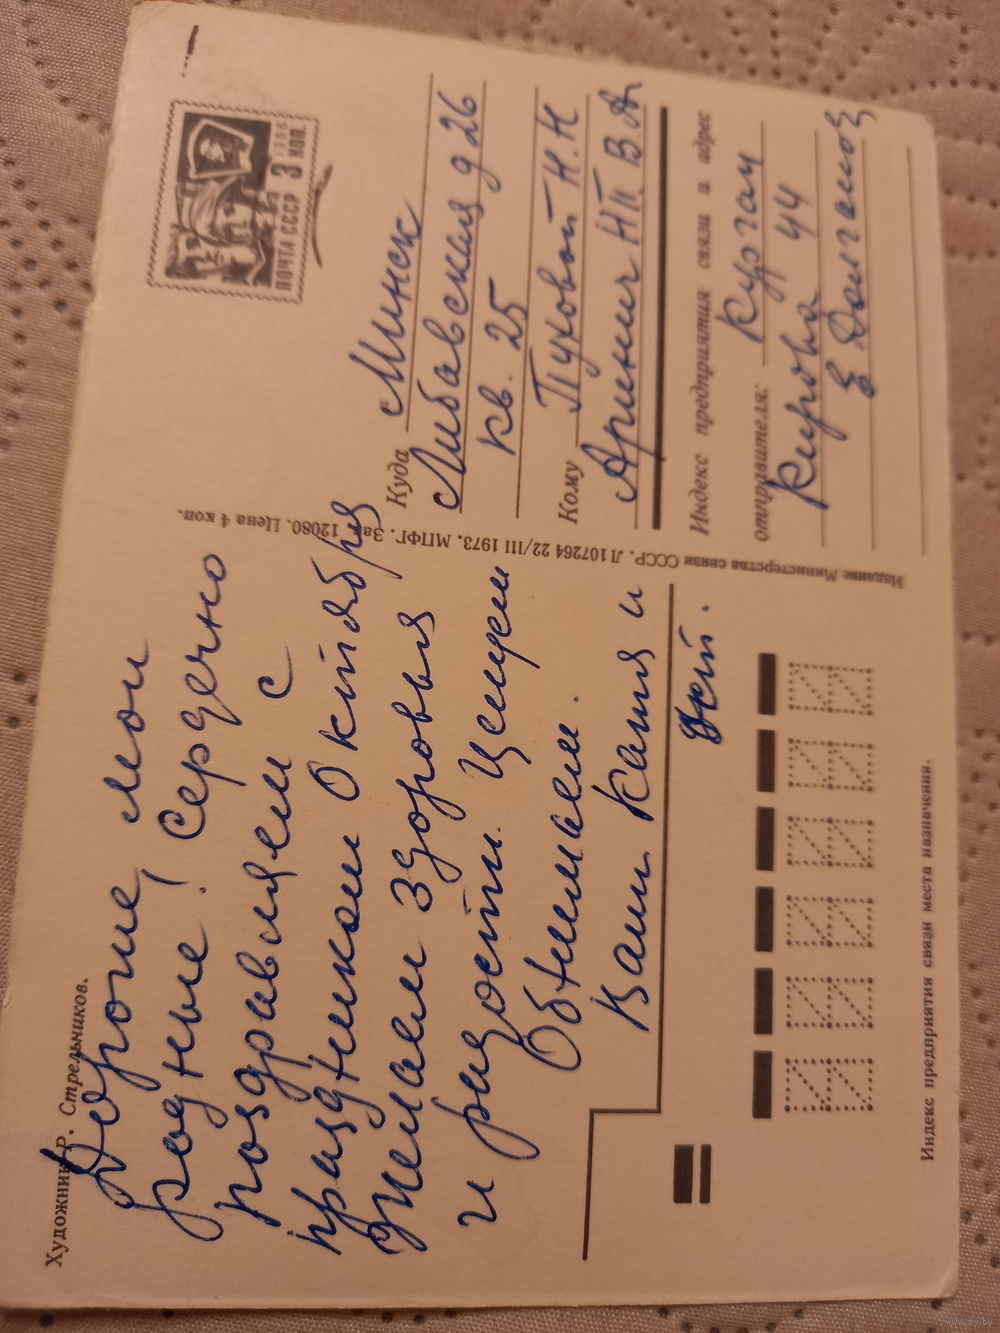 Художник Р. Стрельников.
Дорогие, мои
родные! Сердечно
поздравляем с
праздником Октября
Желаем здоровья
и радости. Целуем
Обнимаем.
Ваши Катя и
Издание Министерства связи СССР. Л107264 22/III 1973. МПФГ. Зак. 12080. Цена 4 коп.
ПОЧТА СССР 3 КОП.
1966
Куда Минск
Либавская д 26
кв. 25
Кому Пуховой Н. Н
Аринич НП. В. А
Индекс предприятия связи и адрес
отправителя: Курган
Кирова 44
Индекс предприятия связи места назначения.
www.ay.by